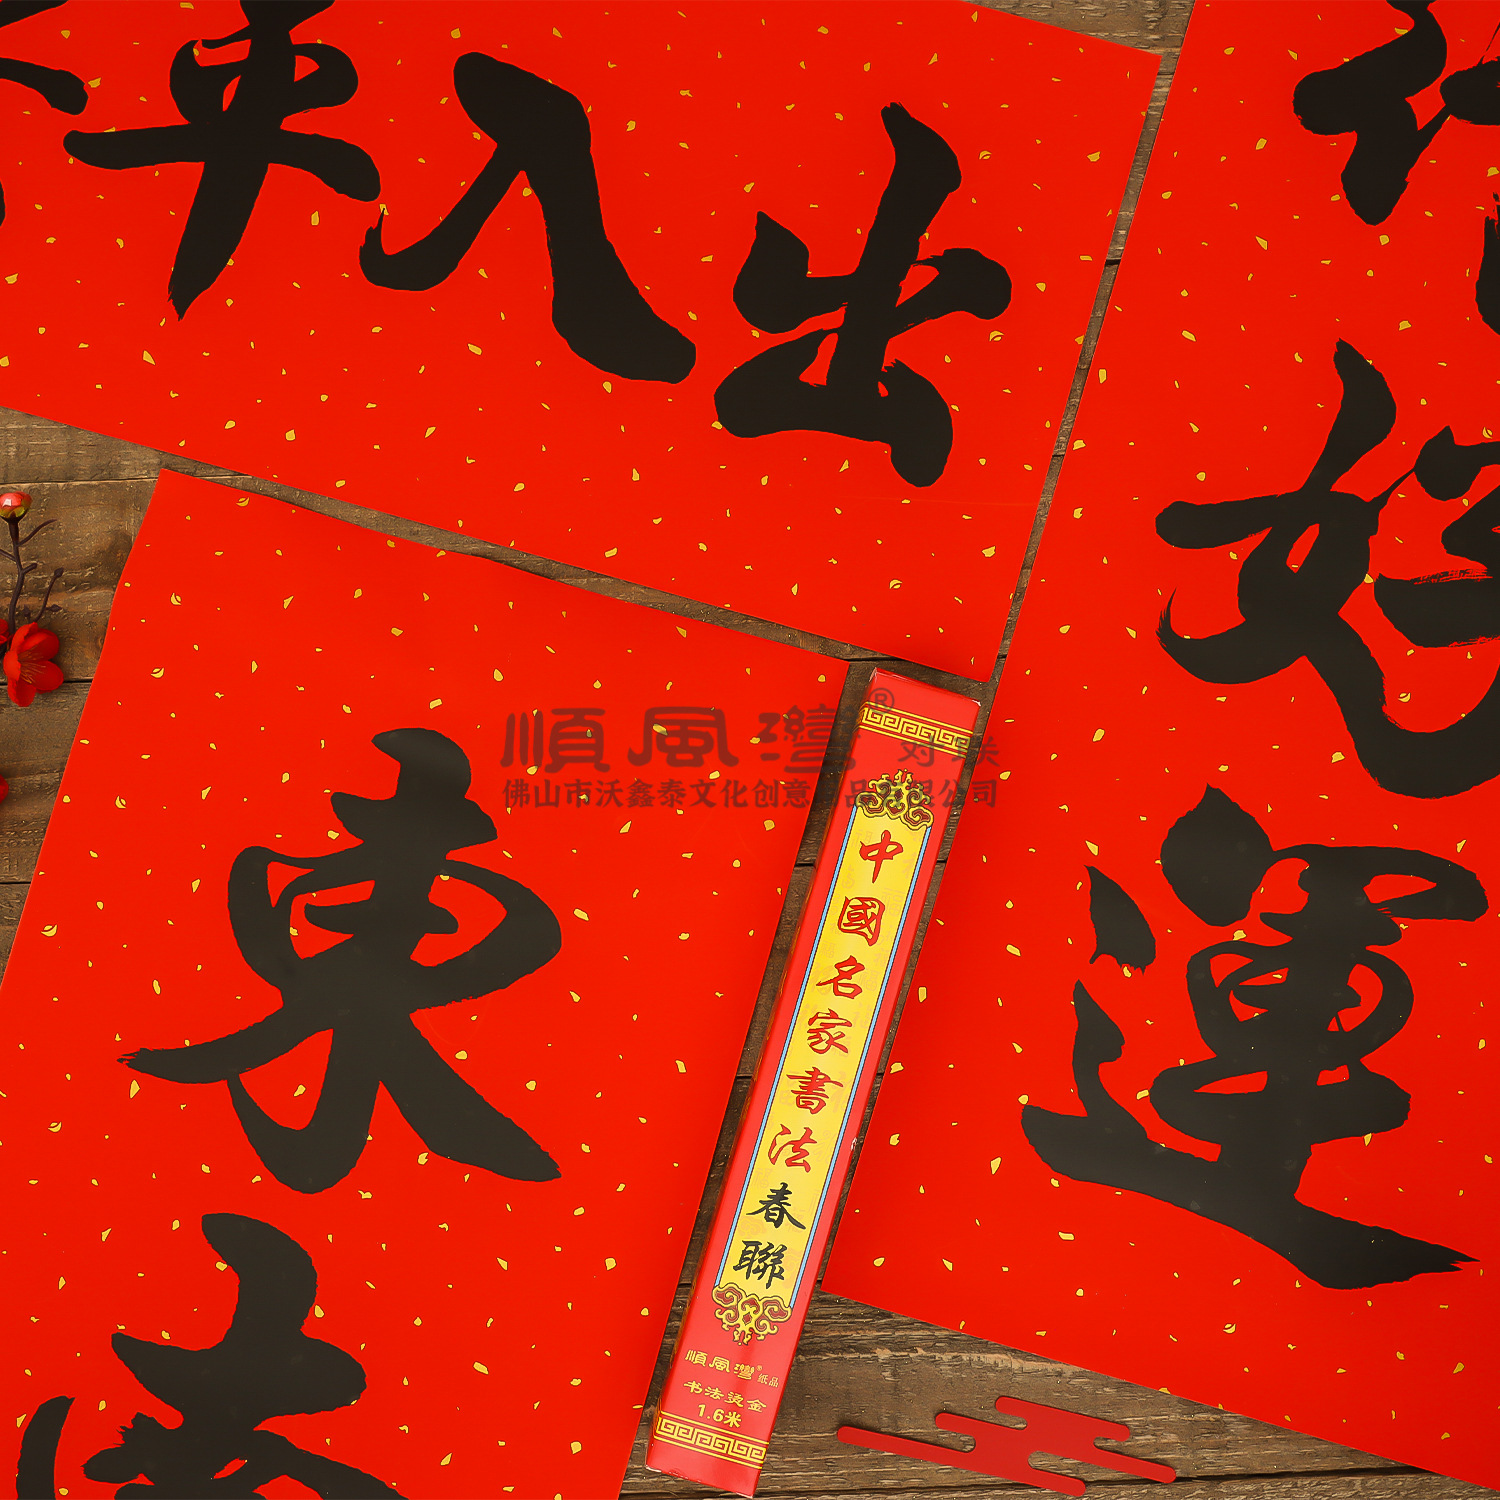 出入平
好運
東
順風灣® 对联
佛山市沃鑫泰文化创意用品有限公司
中國名家書法春聯
順風灣® 纸品
书法烫金
1.6米